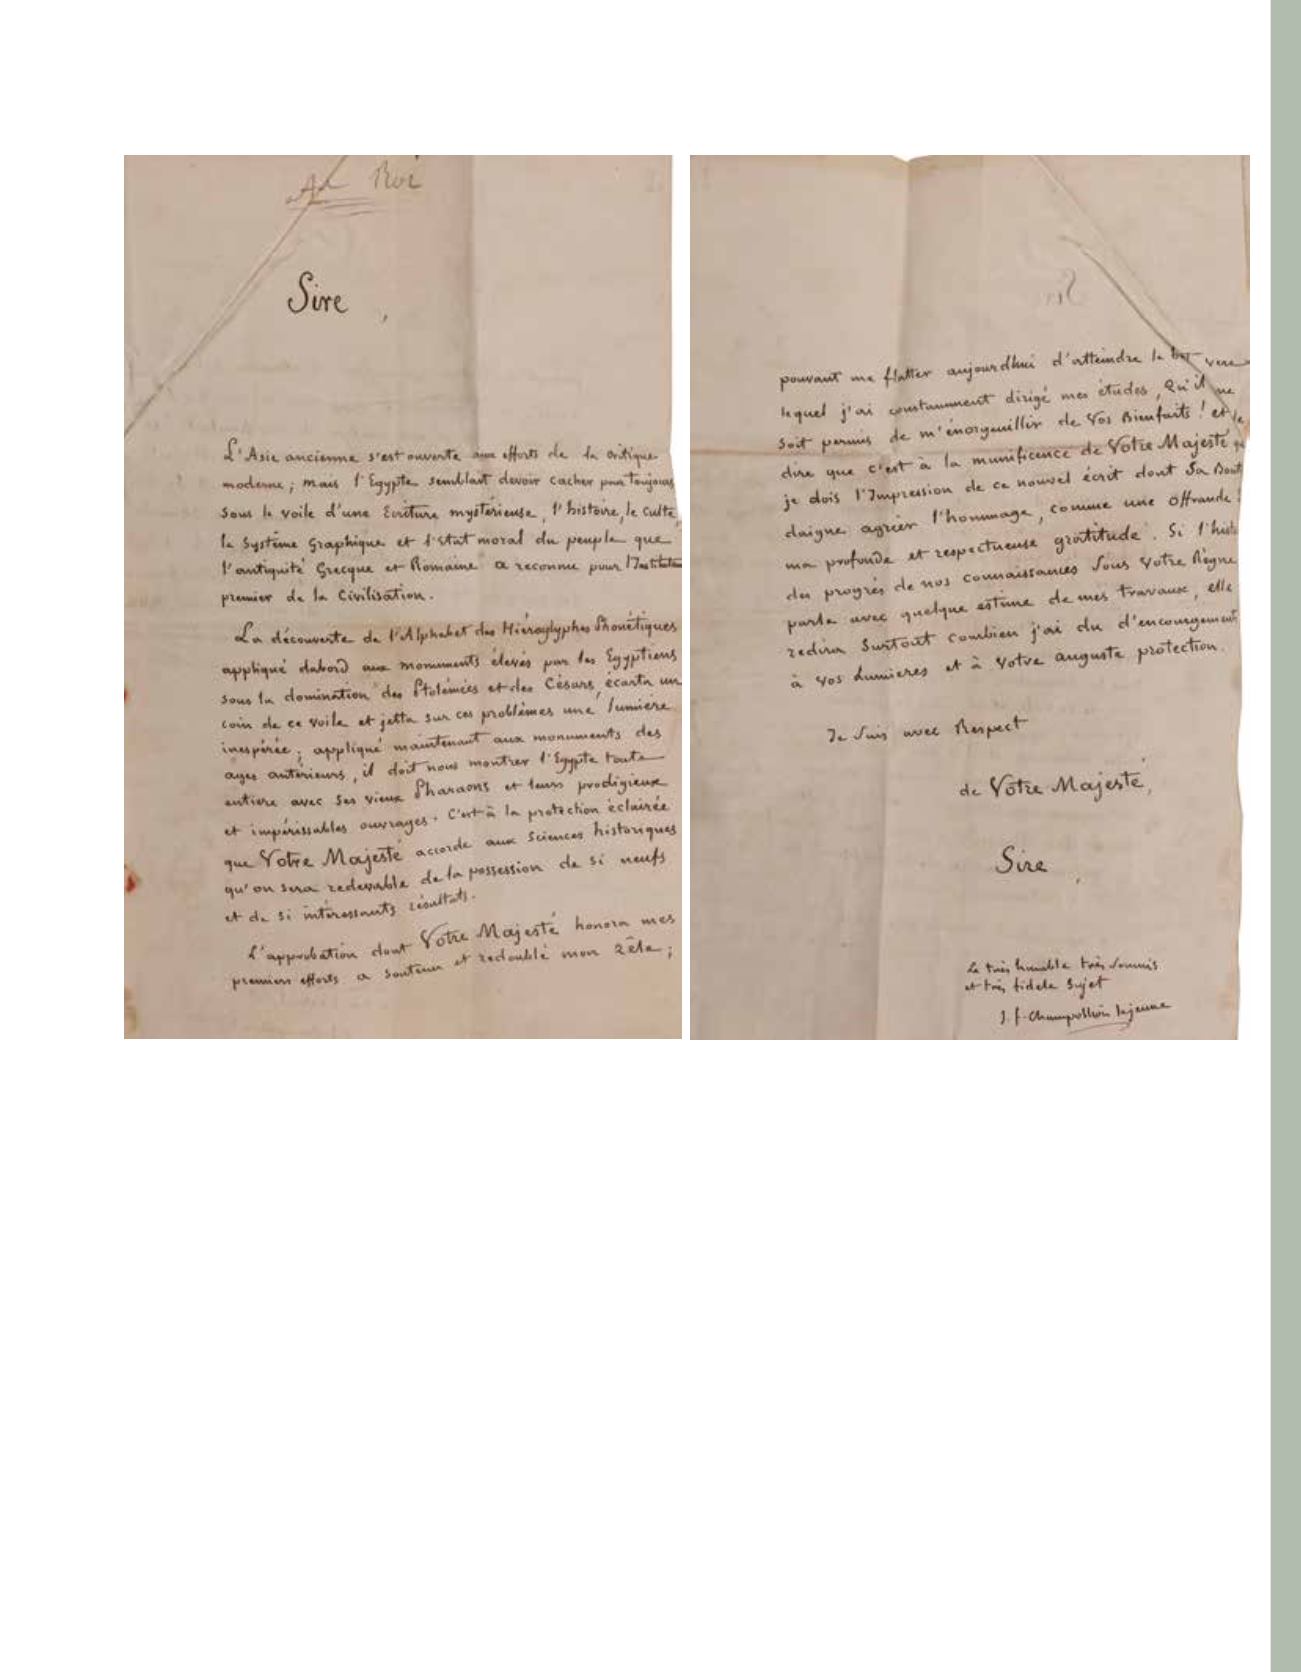 Au Roi
Sire,
L'Asie ancienne s'est ouverte aux efforts de la critique
moderne; mais l'Egypte semblait devoir cacher pour toujours
sous le voile d'une Ecriture mystérieuse, l'histoire, le culte,
le Système graphique et l'état moral du peuple que
l'antiquité Grecque et Romaine a reconnu pour
premier de la Civilisation.
La découverte de l'Alphabet des Hiéroglyphes Phonétiques
appliqué dabord aux monuments élevés par les Egyptiens
sous la domination des Ptolémées et des Césars, écarta un
coin de ce voile et jetta sur ces problèmes une lumière
inespérée; appliqué maintenant aux monuments des
ages antérieurs, il doit nous montrer l'Egypte toute
entiere avec ses vieux Pharaons et leurs prodigieux
et impérissables ouvrages. C'est à la protection éclairée
que Votre Majesté accorde aux Sciences historiques
qu'on sera redevable de la possession de si neufs
et de si intéressants résultats.
L'approbation dont Votre Majesté honora mes
premiers efforts a soutenu et redoublé mon zèle;
pouvant me flatter aujourdhui d'atteindre le but vers
lequel j'ai constamment dirigé mes études, Qu'il me
soit permis de m'énorgueillir de Vos Bienfaits! et de
dire que c'est à la munificence de Votre Majesté
je dois l'Impression de ce nouvel écrit dont Sa Bont
daigne agréer l'hommage, comme une offrande
ma profonde et respectueuse gratitude. Si l'histo
des progrès de nos connaissances sous Votre Règne
parle avec quelque estime de mes travaux, elle
redira surtout combien j'ai du d'encouragement
à vos Lumieres et à votre auguste protection.
Je suis avec Respect
de Votre Majesté,
Sire,
Le très humble très soumis
et très fidele sujet
J. f. Champollion le jeune